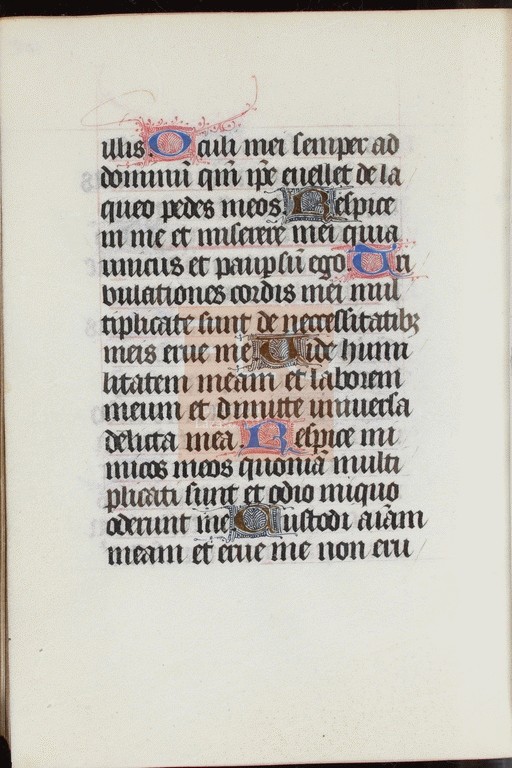 illis. Oculi mei semper ad
dominũ qm̃ ip̃e euellet de la
queo pedes meos. Respice
in me et miserere mei quia
unicus et paup sũ ego. Tri
bulationes cordis mei mul
tiplicate sunt de necessitatibꝫ
meis erue me Uide humi
litatem meam et laborem
meum et dimitte uniuersa
delicta mea. Respice ini
micos meos quoniã multi
plicati sunt et odio iniquo
oderunt me Custodi aĩam
meam et erue me non eru